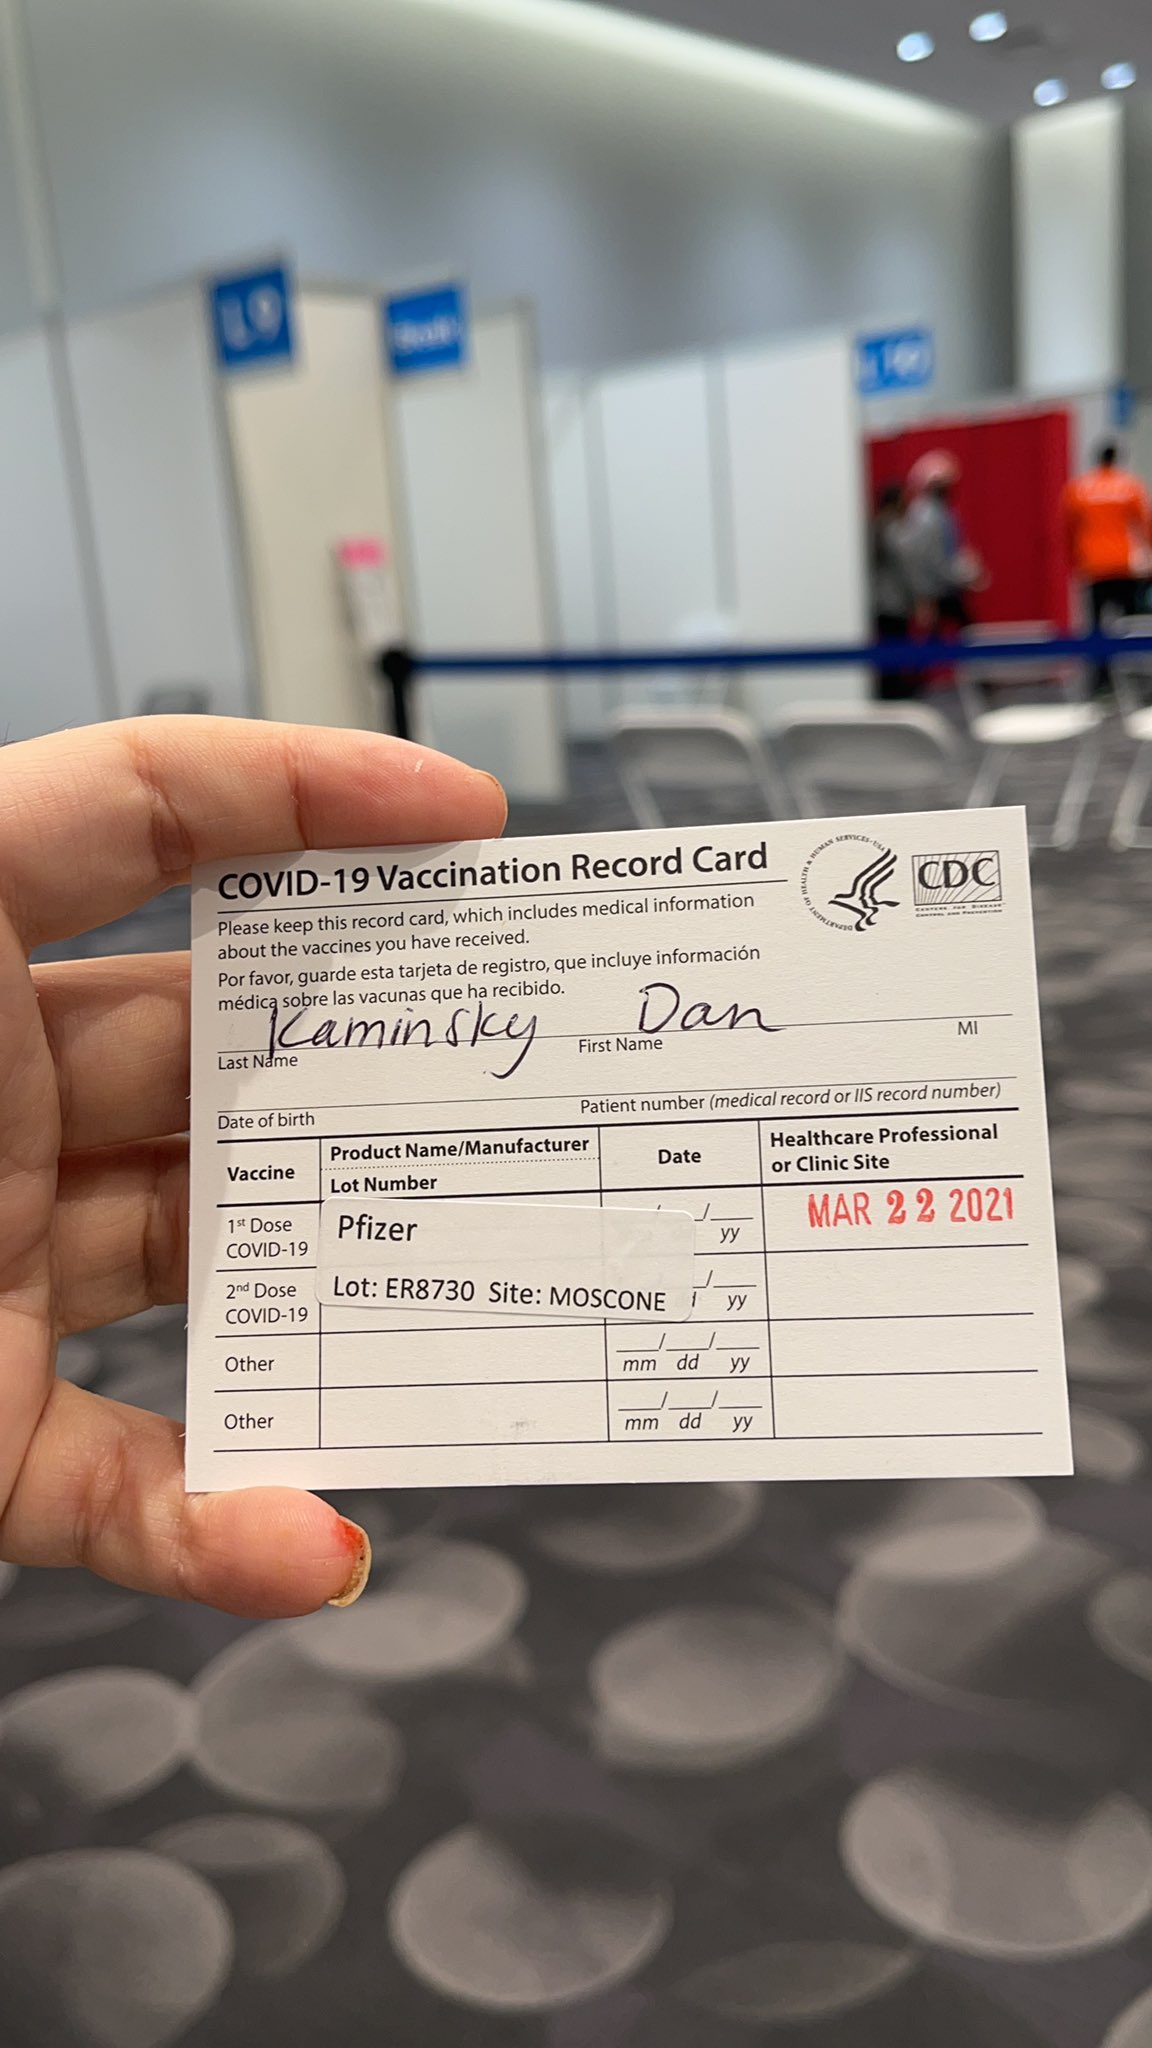 L9
COVID-19 Vaccination Record Card
Please keep this record card, which includes medical information
about the vaccines you have received.
Por favor, guarde esta tarjeta de registro, que incluye información
médica sobre las vacunas que ha recibido.
DEPARTMENT OF HEALTH & HUMAN SERVICES • USA
CDC
CENTERS FOR DISEASE
CONTROL AND PREVENTION
Kaminsky Dan
Last Name First Name MI
Date of birth Patient number (medical record or IIS record number)
Vaccine Product Name/Manufacturer Date Healthcare Professional
Lot Number or Clinic Site
1st Dose
COVID-19
Pfizer
__/__
yy
MAR 22 2021
2nd Dose
COVID-19
Lot: ER8730 Site: MOSCONE
__/__
yy
Other
__/__/__
mm dd yy
Other
__/__/__
mm dd yy